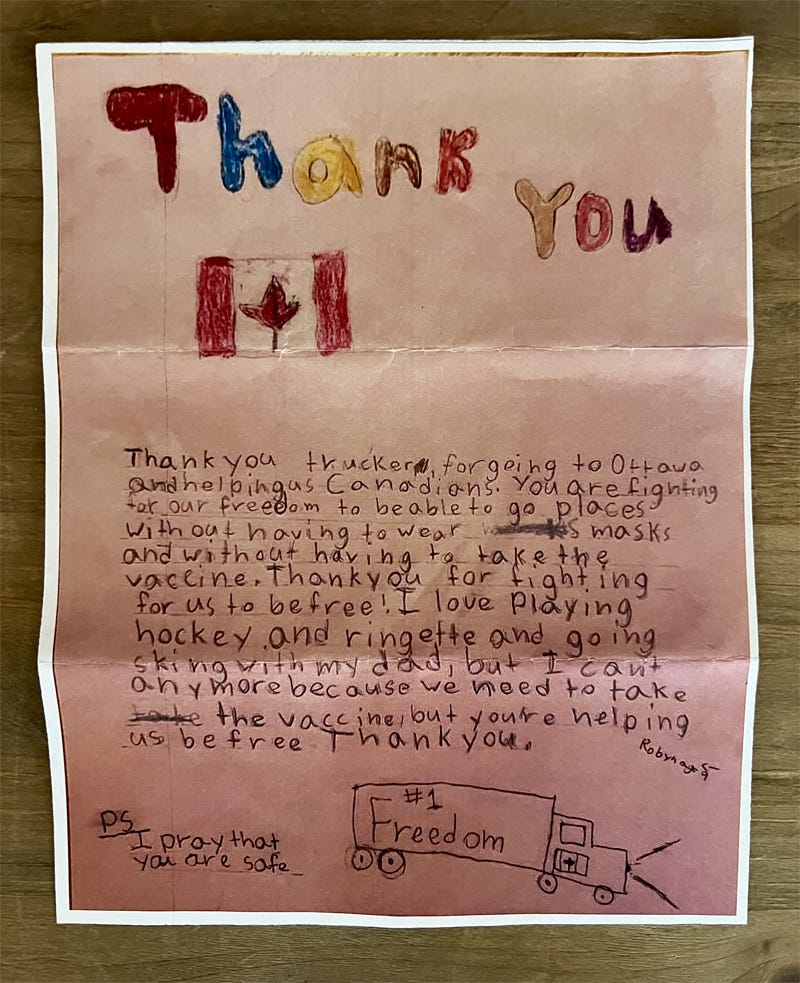 Thank You
Thank you truckers, for going to Ottawa
and helping us Canadians. You are fighting
for our freedom to be able to go places
without having to wear masks
and without having to take the
vaccine. Thank you for fighting
for us to be free! I love Playing
hockey and ringette and going
skiing with my dad, but I cant
anymore because we need to take
the vaccine, but you're helping
us be free Thank you.
PS
I pray that
you are safe
#1
Freedom